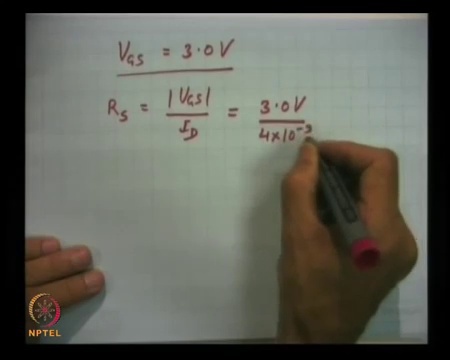 V_GS = 3.0 V
R_S = |V_GS| / I_D = 3.0 V / 4×10⁻³
NPTEL